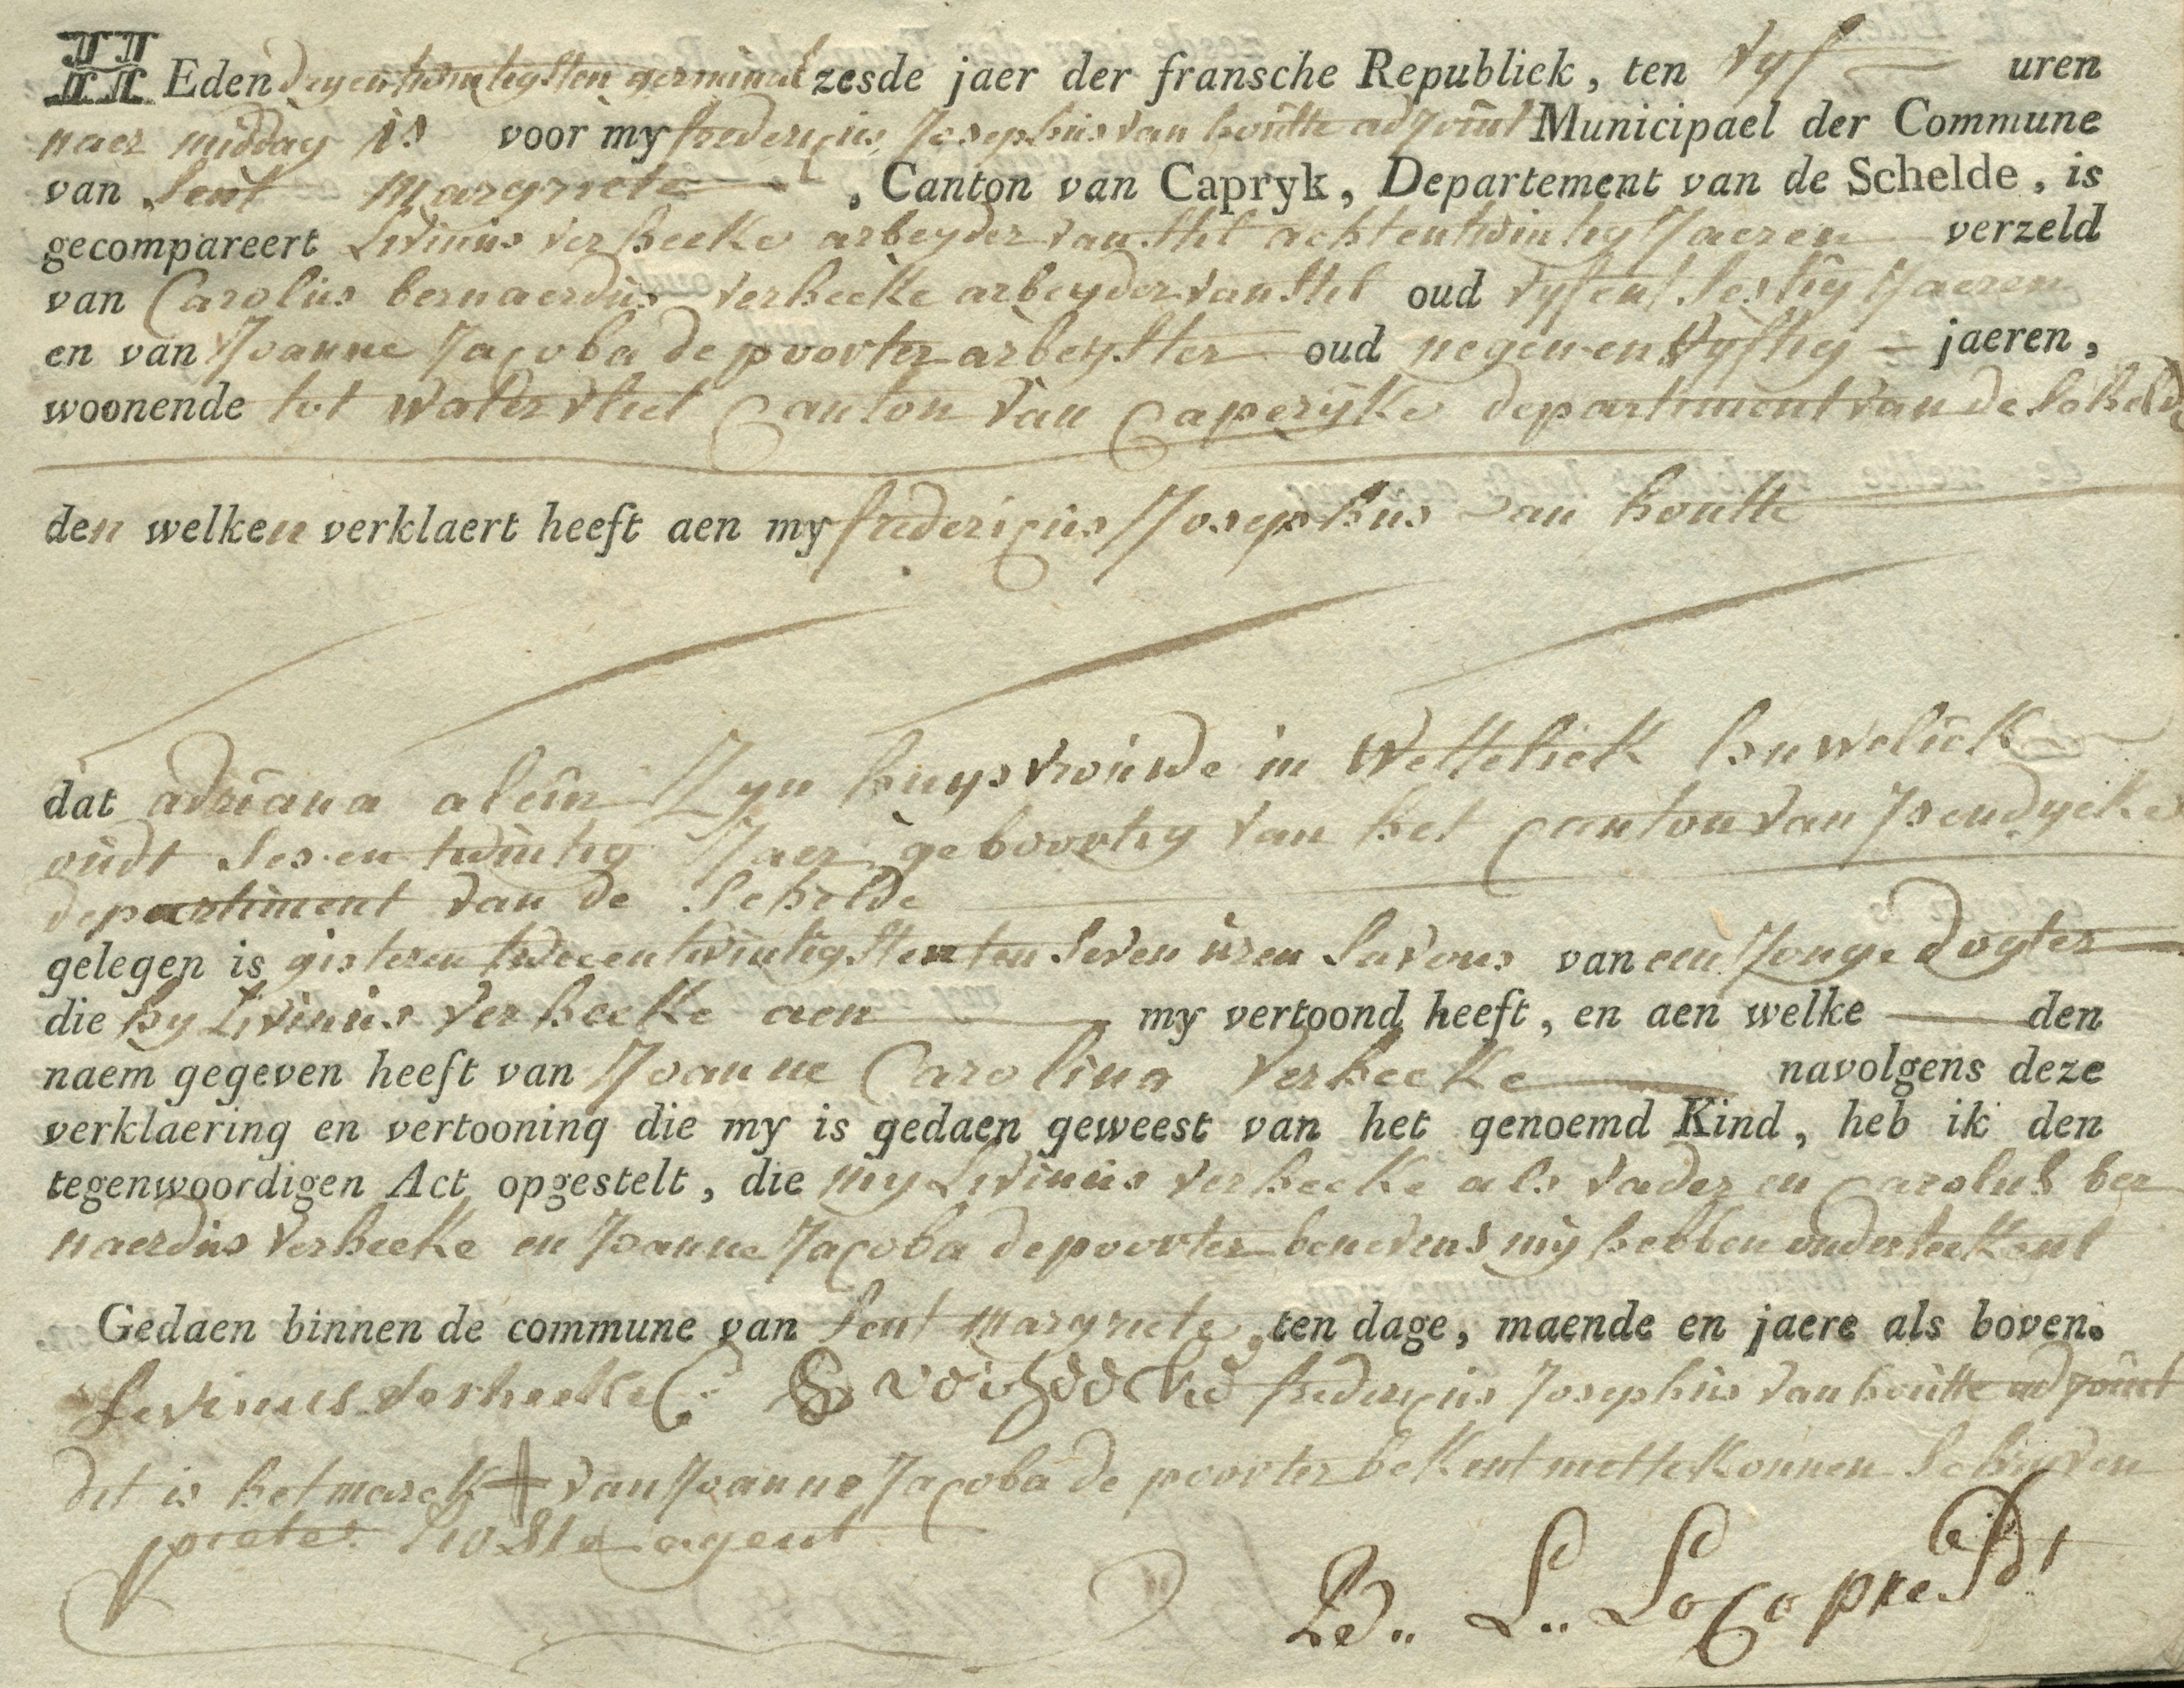 HEden dryentwintigsten germinal zesde jaer der fransche Republiek, ten vyf uren
naer middag is voor my fredericus Josephus van houtte adjoint Municipael der Commune
van Sent Margriete, Canton van Capryk, Departement van de Schelde, is
gecompareert Livinus verheeke arbeyder van stil achtentwintig Jaeren verzeld
van Carolus bernaerdus verheeke arbeyder van stil oud vyfent sestig Jaeren
en van Joanne Jacoba de poorter arbeyster oud negen en vyftig jaeren,
woonende tot watervliet Canton van Caperijke departiment van de Schelde
den welken verklaert heeft aen my fredericus Josephus van houtte
dat adriana alein Zyn huysvrouwe in Wetteliek huweliek
oudt ses en twintig Jaer geboortig van het Canton van Jsendycke
departiment van de Schelde
gelegen is gisteren tweeentwintigsten ten seven uren savons van een Jonge dogter
die hy Livinus Verheeke aen my vertoond heeft, en aen welke den
naem gegeven heeft van Joanne Carolina Verheeke navolgens deze
verklaering en vertooning die my is gedaen geweest van het genoemd Kind, heb ik den
tegenwoordigen Act opgestelt, die my Livinus verheeke als vader en Carolus ber
naerdus verheeke en Joanne Jacoba de poorter benevens mij hebben onderteekent
Gedaen binnen de commune van Sent margriete, ten dage, maende en jaere als boven.
Levinus Verheeke C: B fredericus Josephus van houtte adjoint
dit is het marck + van Joanne Jacoba de poorter bekent niet te konnen Schryven
pieter agent
B.. L.. LoCo presdt